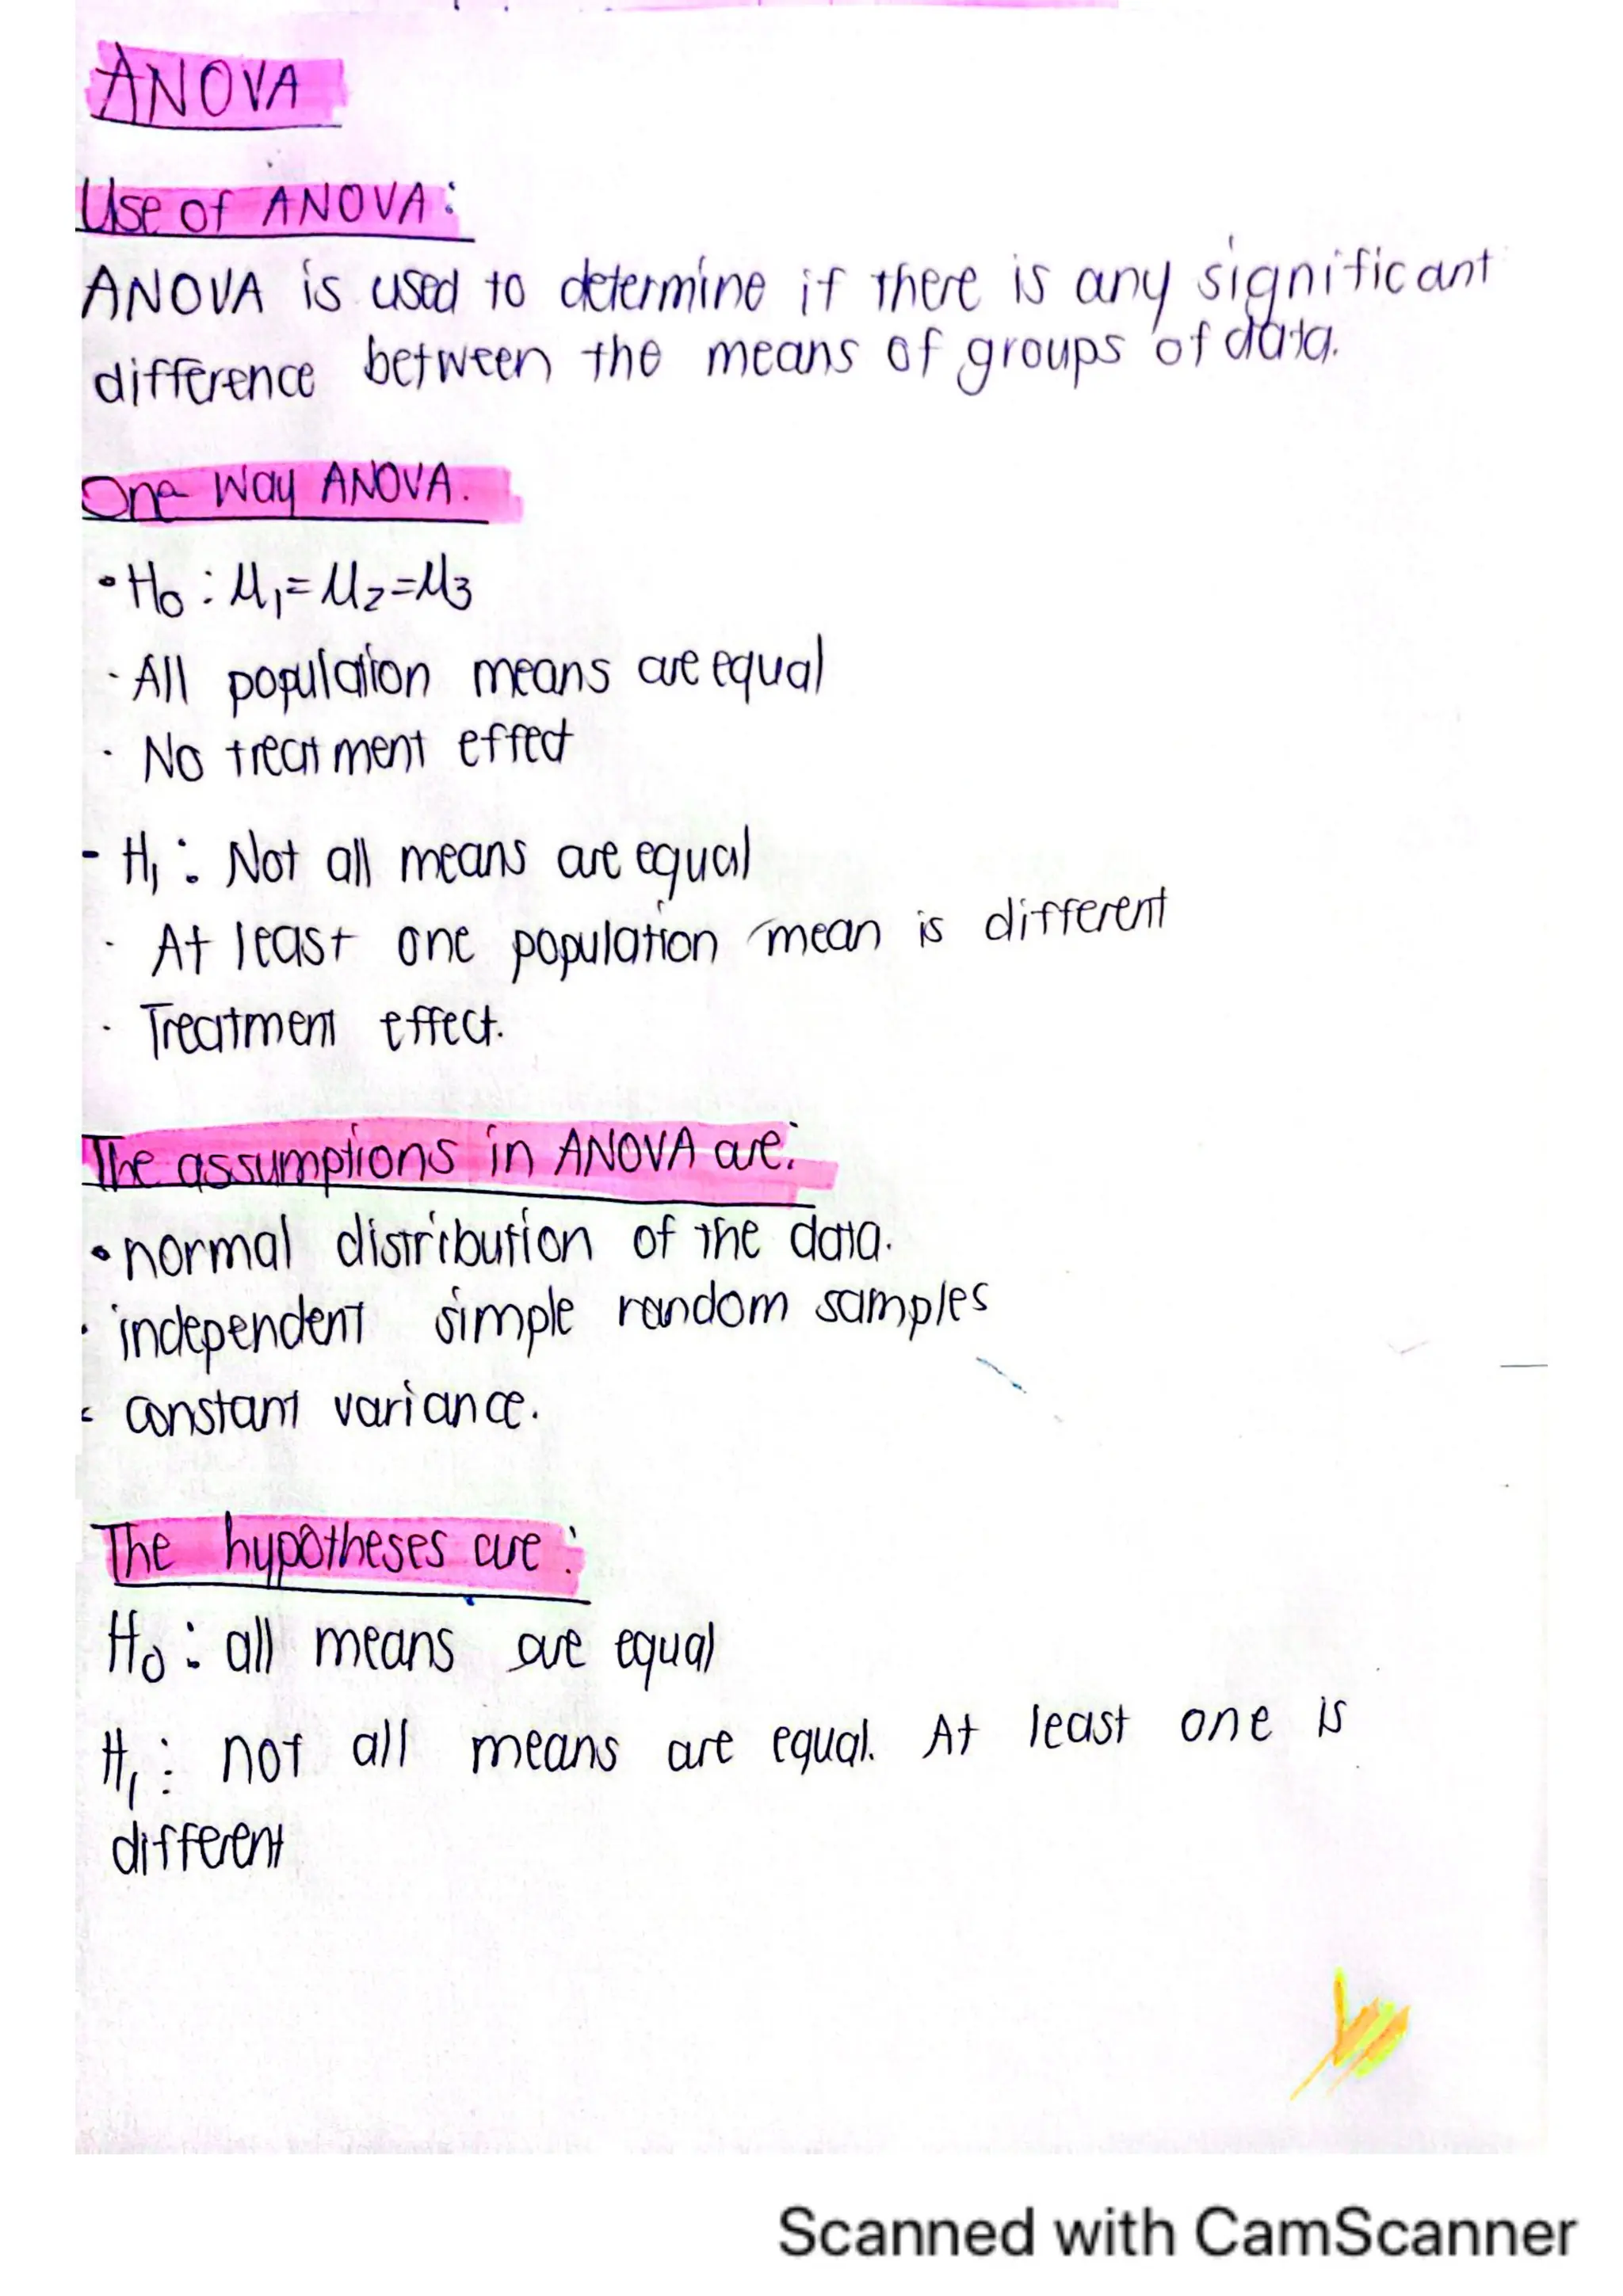 ANOVA
Use of ANOVA:
ANOVA is used to determine if there is any significant
difference between the means of groups of data.
One Way ANOVA.
• H₀ : μ₁=μ₂=μ₃
· All population means are equal
· No treatment effect
- H₁ : Not all means are equal
· At least one population mean is different
· Treatment effect.
The assumptions in ANOVA are:
• normal distribution of the data.
· independent simple random samples
· constant variance.
The hypotheses are :
H₀ : all means are equal
H₁ : not all means are equal. At least one is
different
Scanned with CamScanner